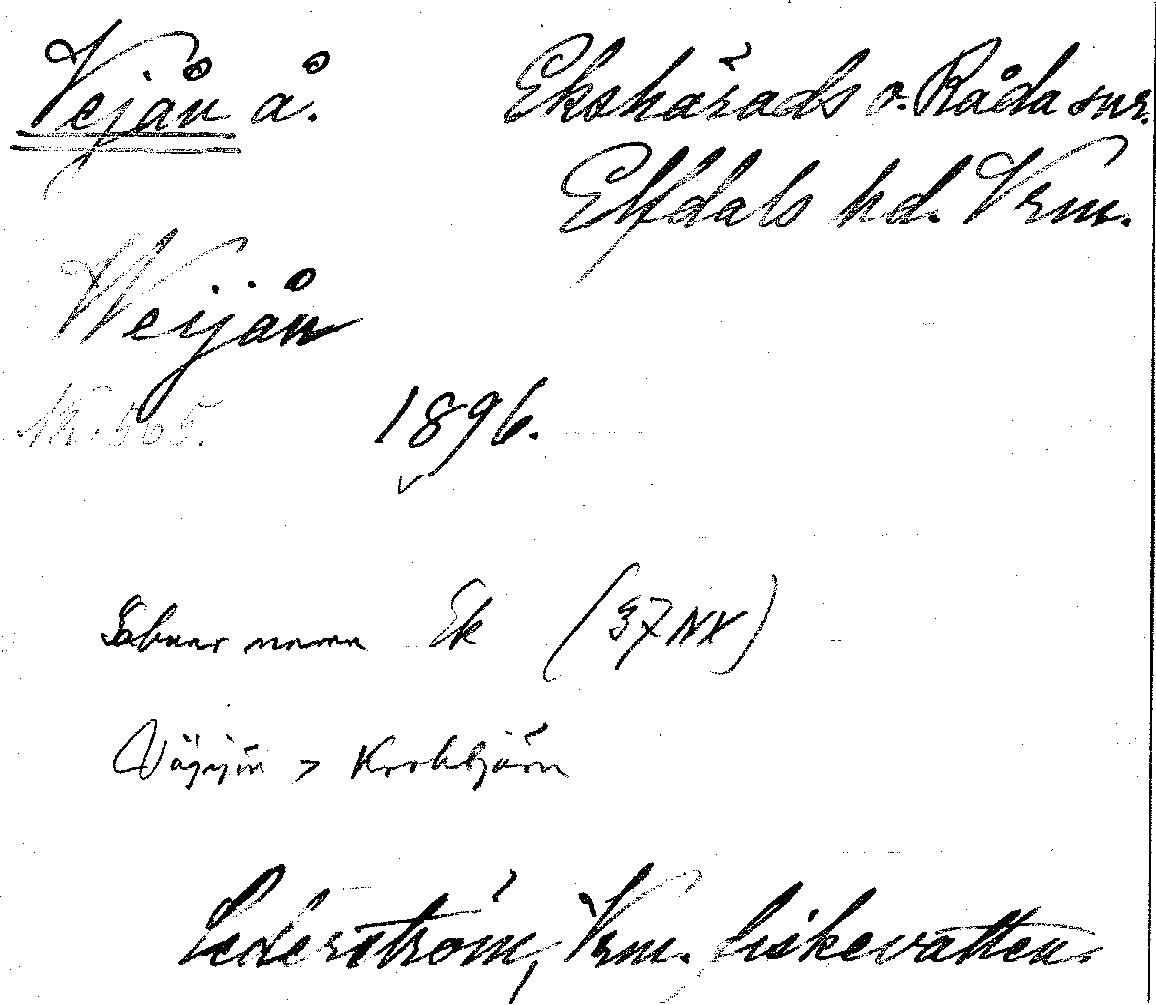 Vejån å. Ekshärads o. Råda snr.
Elfdals hd. Vrm.
Weijån
1896.
Saknar namn Ek (37 NV)
> Krokbjörn
Cederström, Vrm. fiskevatten.